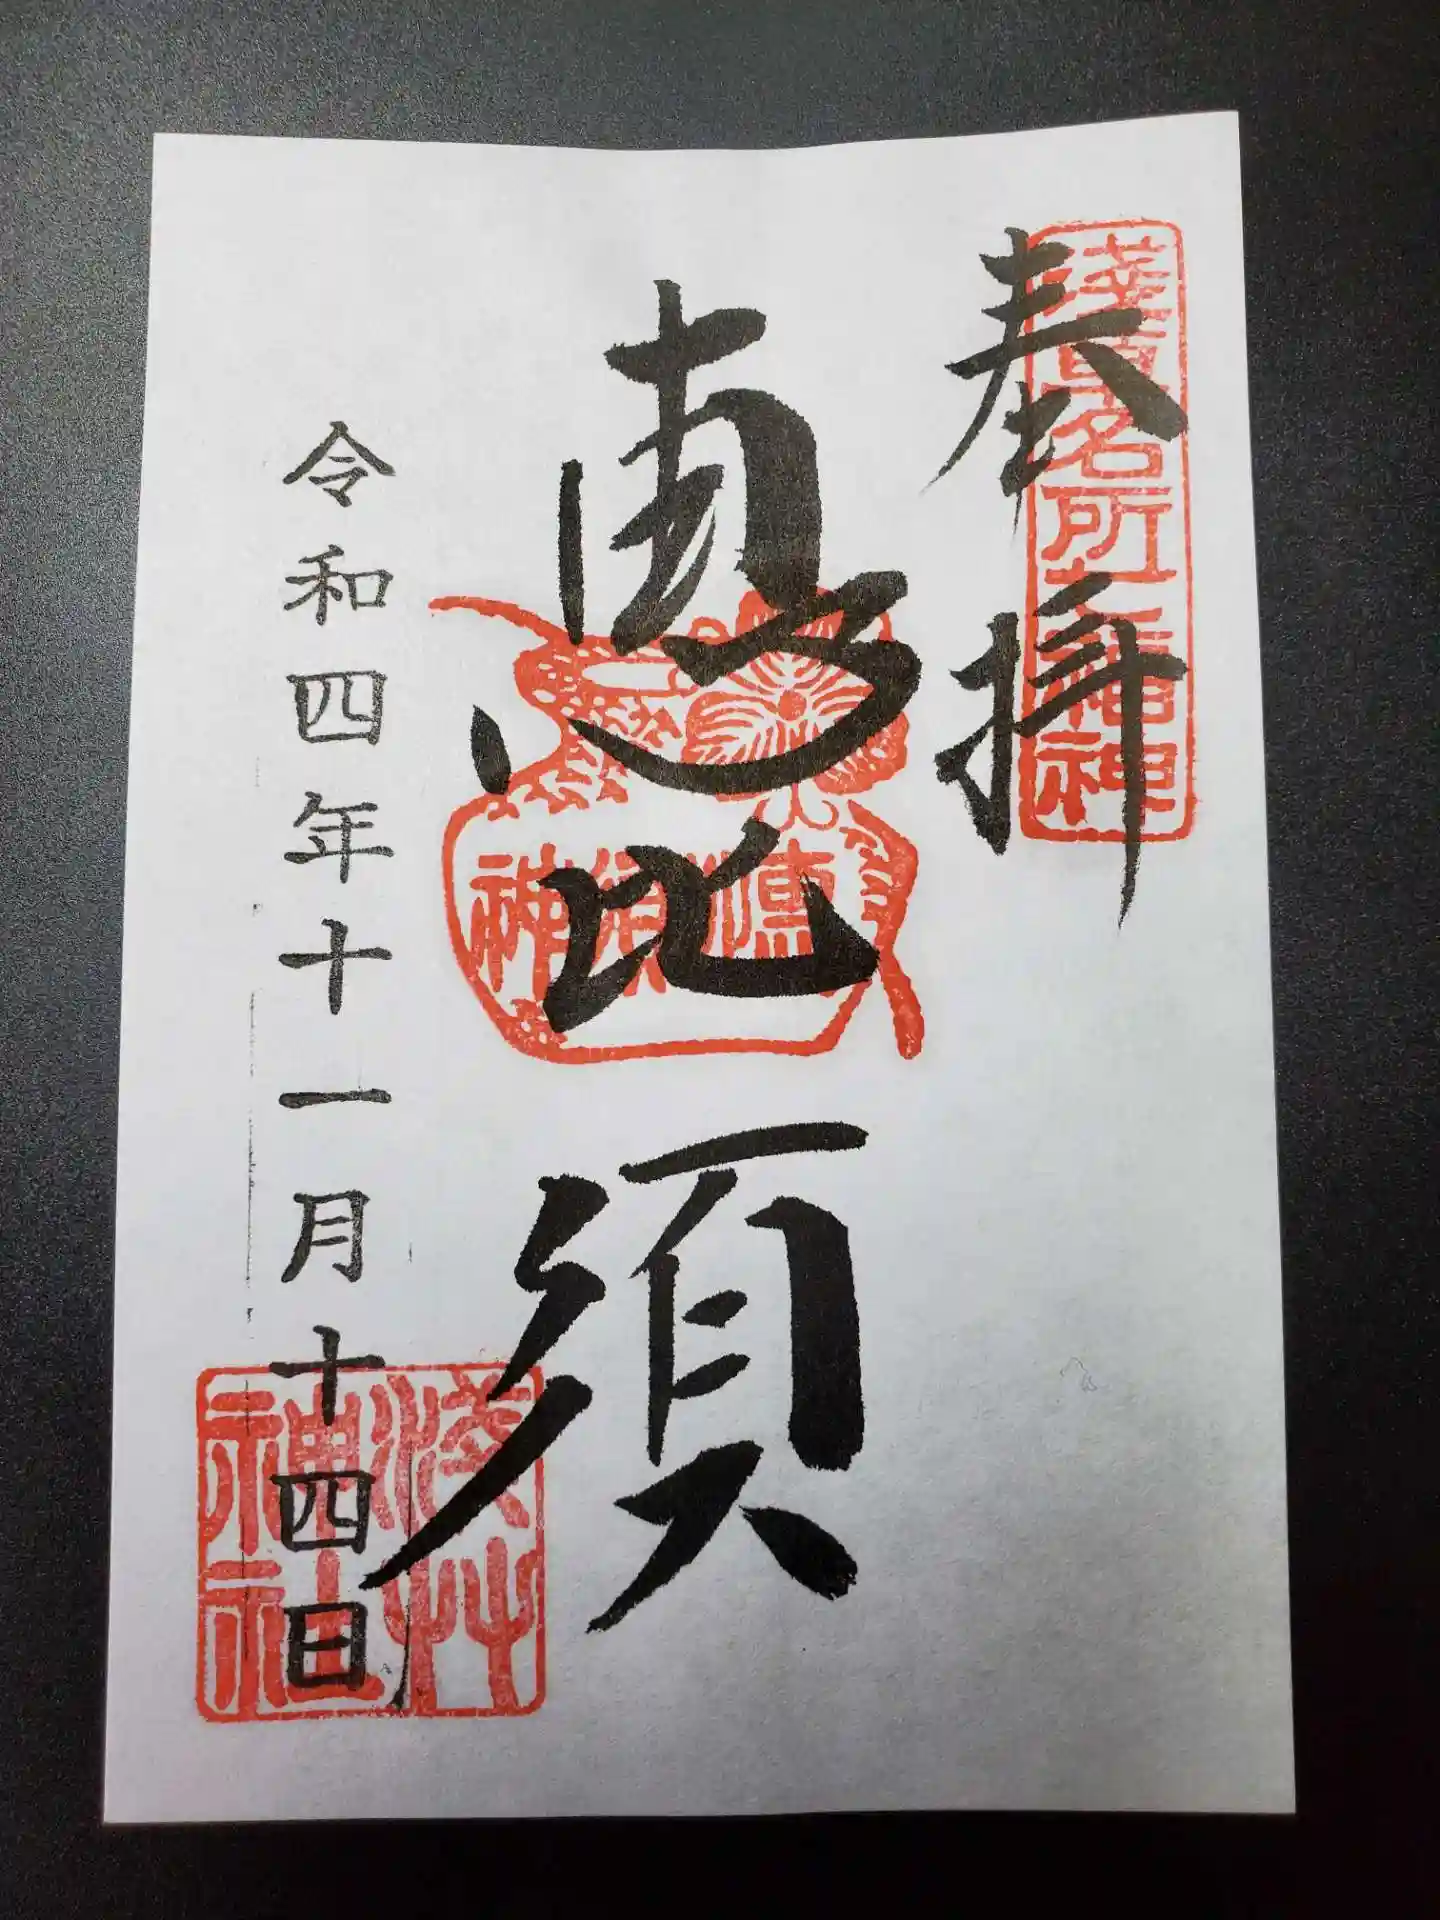 奉拝
淺草名所七福神
恵比須
令和四年十一月十四日
淺草神社